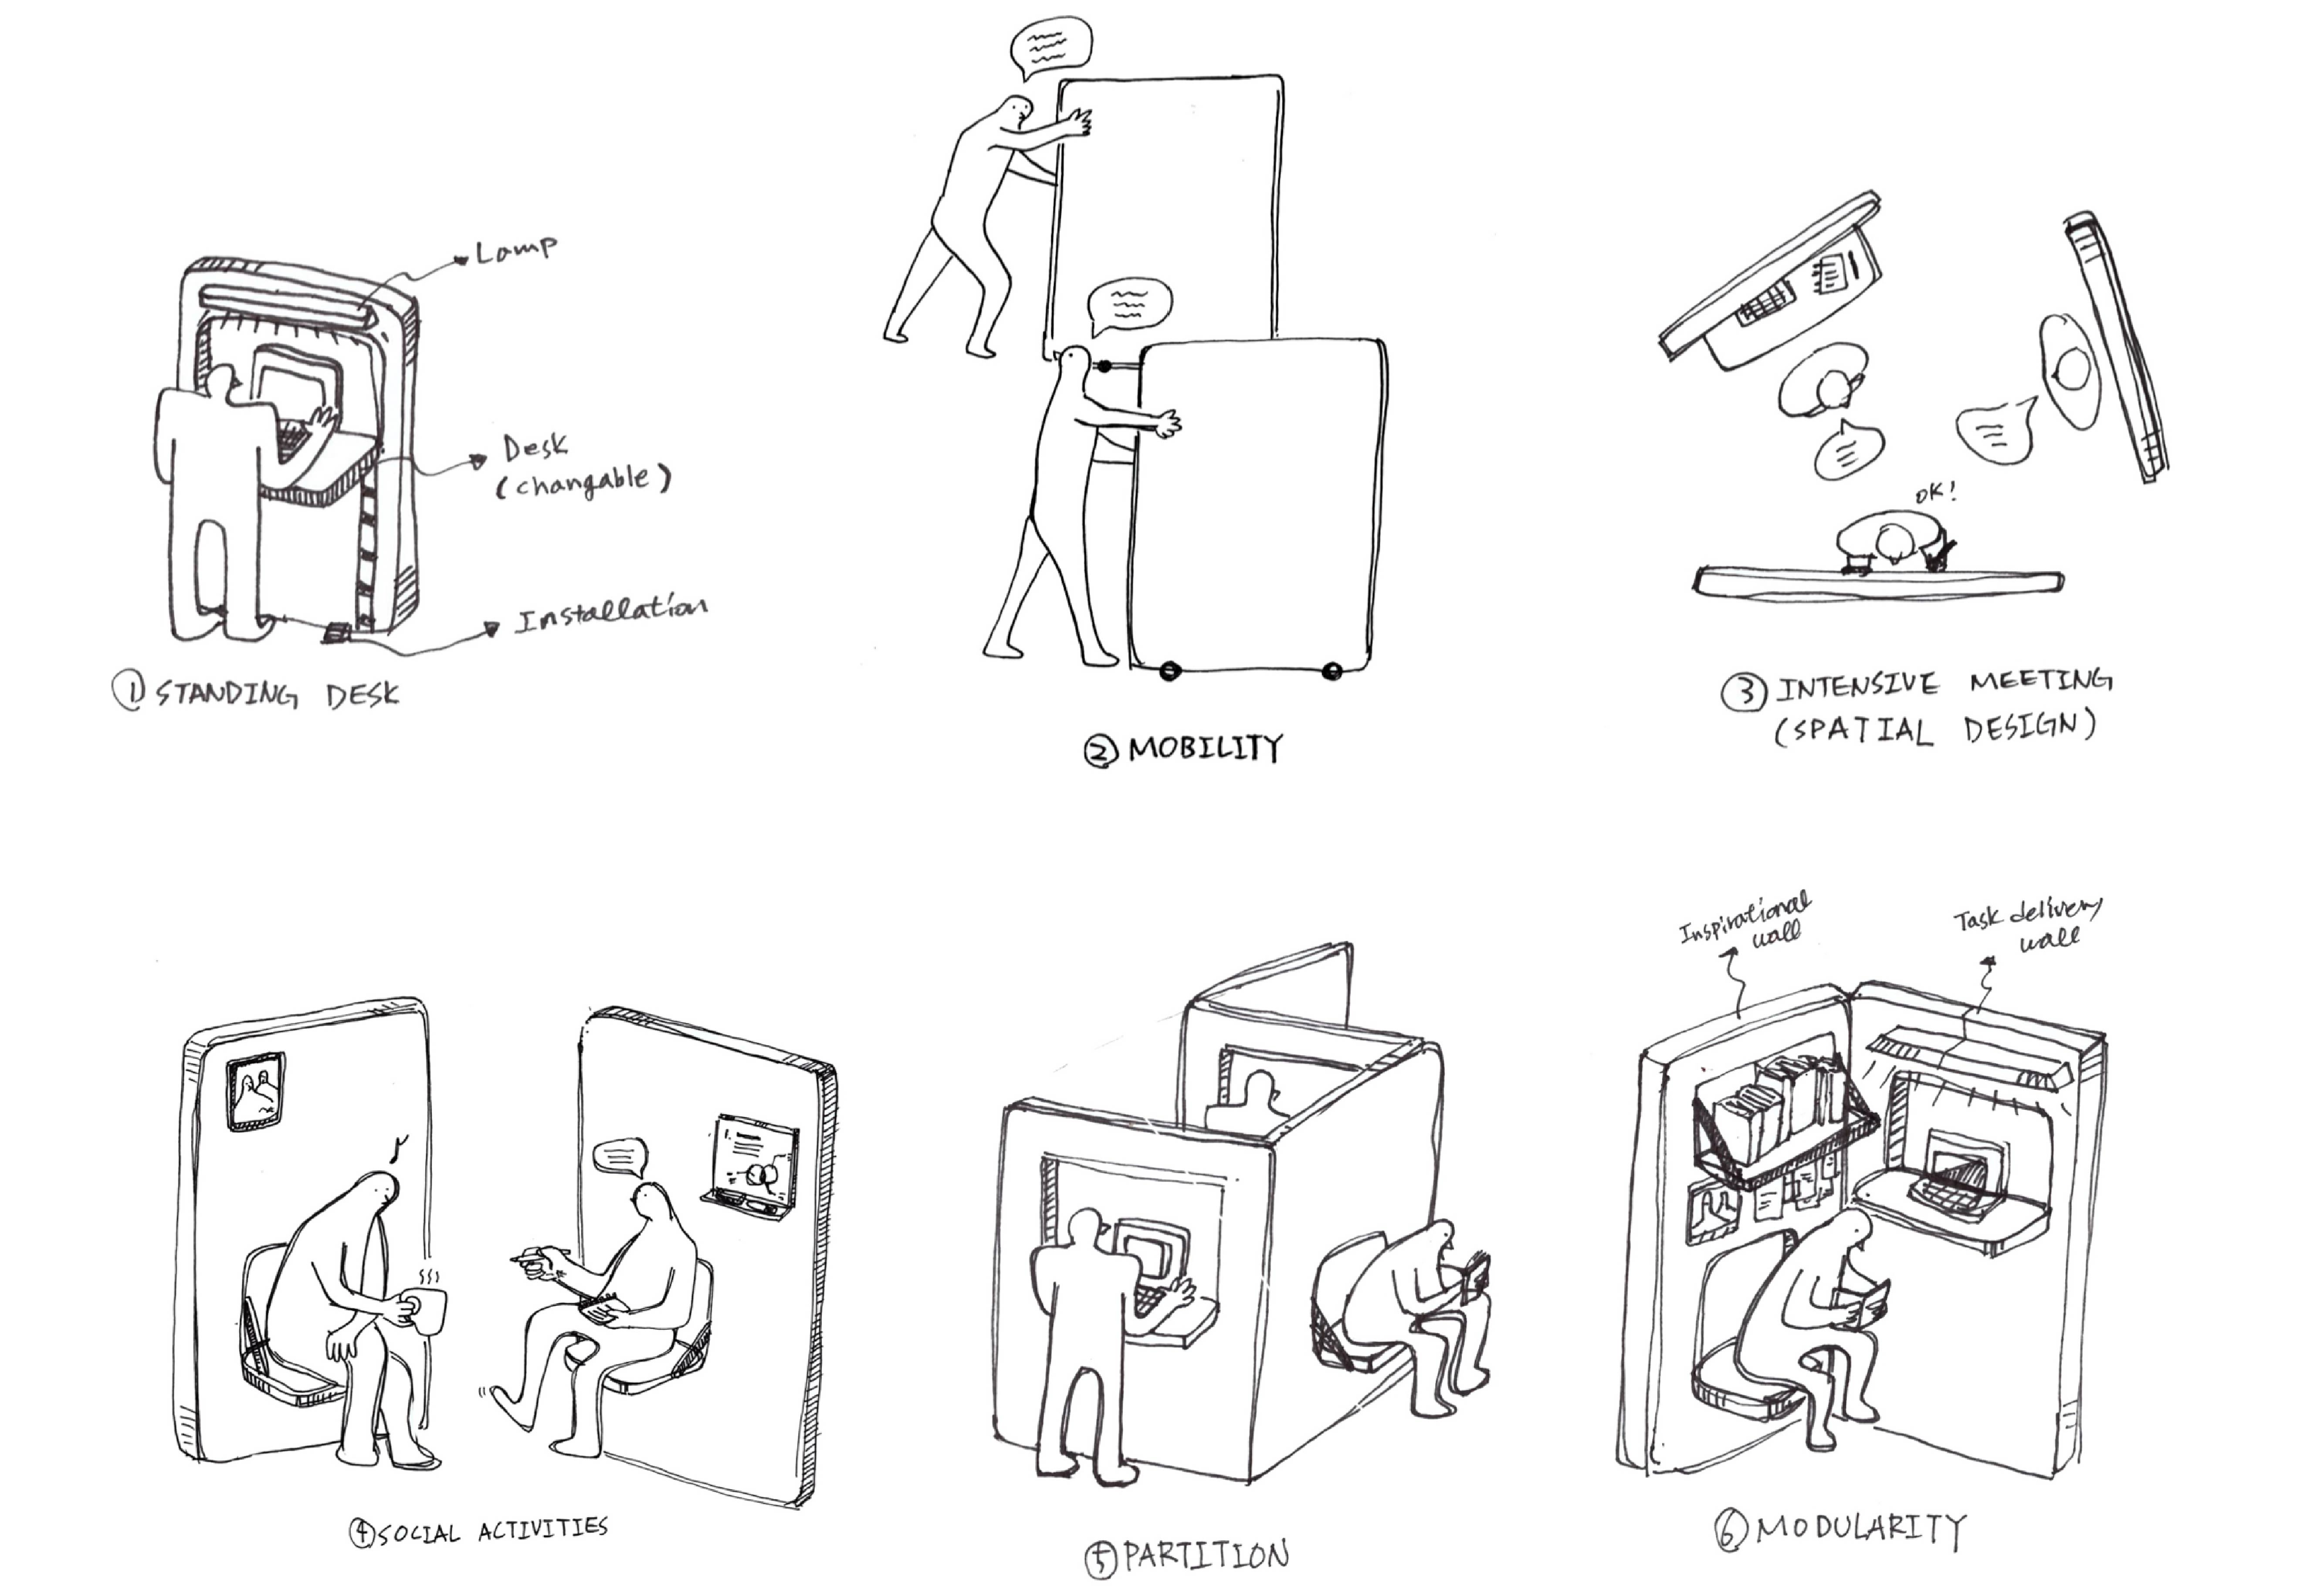 Lamp
Desk
(changable)
Installation
① STANDING DESK
② MOBILITY
OK!
③ INTENSIVE MEETING
(SPATIAL DESIGN)
④ SOCIAL ACTIVITIES
⑤ PARTITION
Inspirational
wall
Task delivery
wall
⑥ MODULARITY